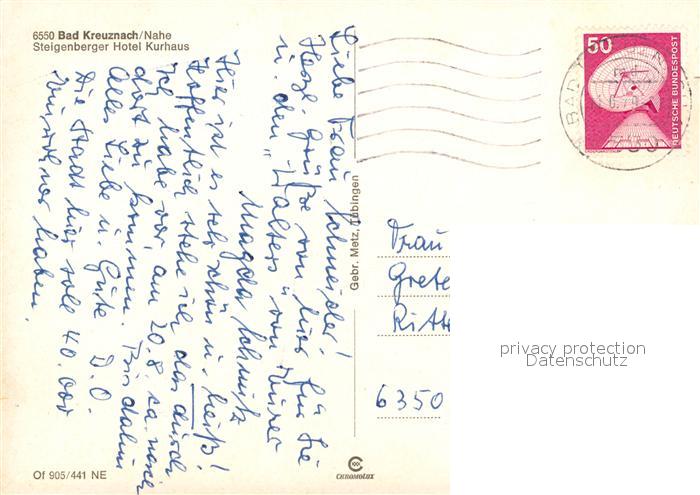 6550 Bad Kreuznach/Nahe
Steigenberger Hotel Kurhaus
Liebe Frau Schneider!
Herzl. Grüße von hier für Sie
u. den "Walters" von Ihrer
Magda Schmitz
Hier ist es sehr schön u. heiß!
Hoffentlich stehe ich das durch
Ich habe vor am 20.8. ca. nach
dort zu kommen. Bis dahin
Alles Liebe u. Gute D. O.
Die Stadt hier soll 40.000
Einwohner haben.
Gebr. Metz, Tübingen
50
DEUTSCHE BUNDESPOST
BAD
Frau
Grete
Ritt
6350
privacy protection
Datenschutz
Of 905/441 NE
CHROMOLUX